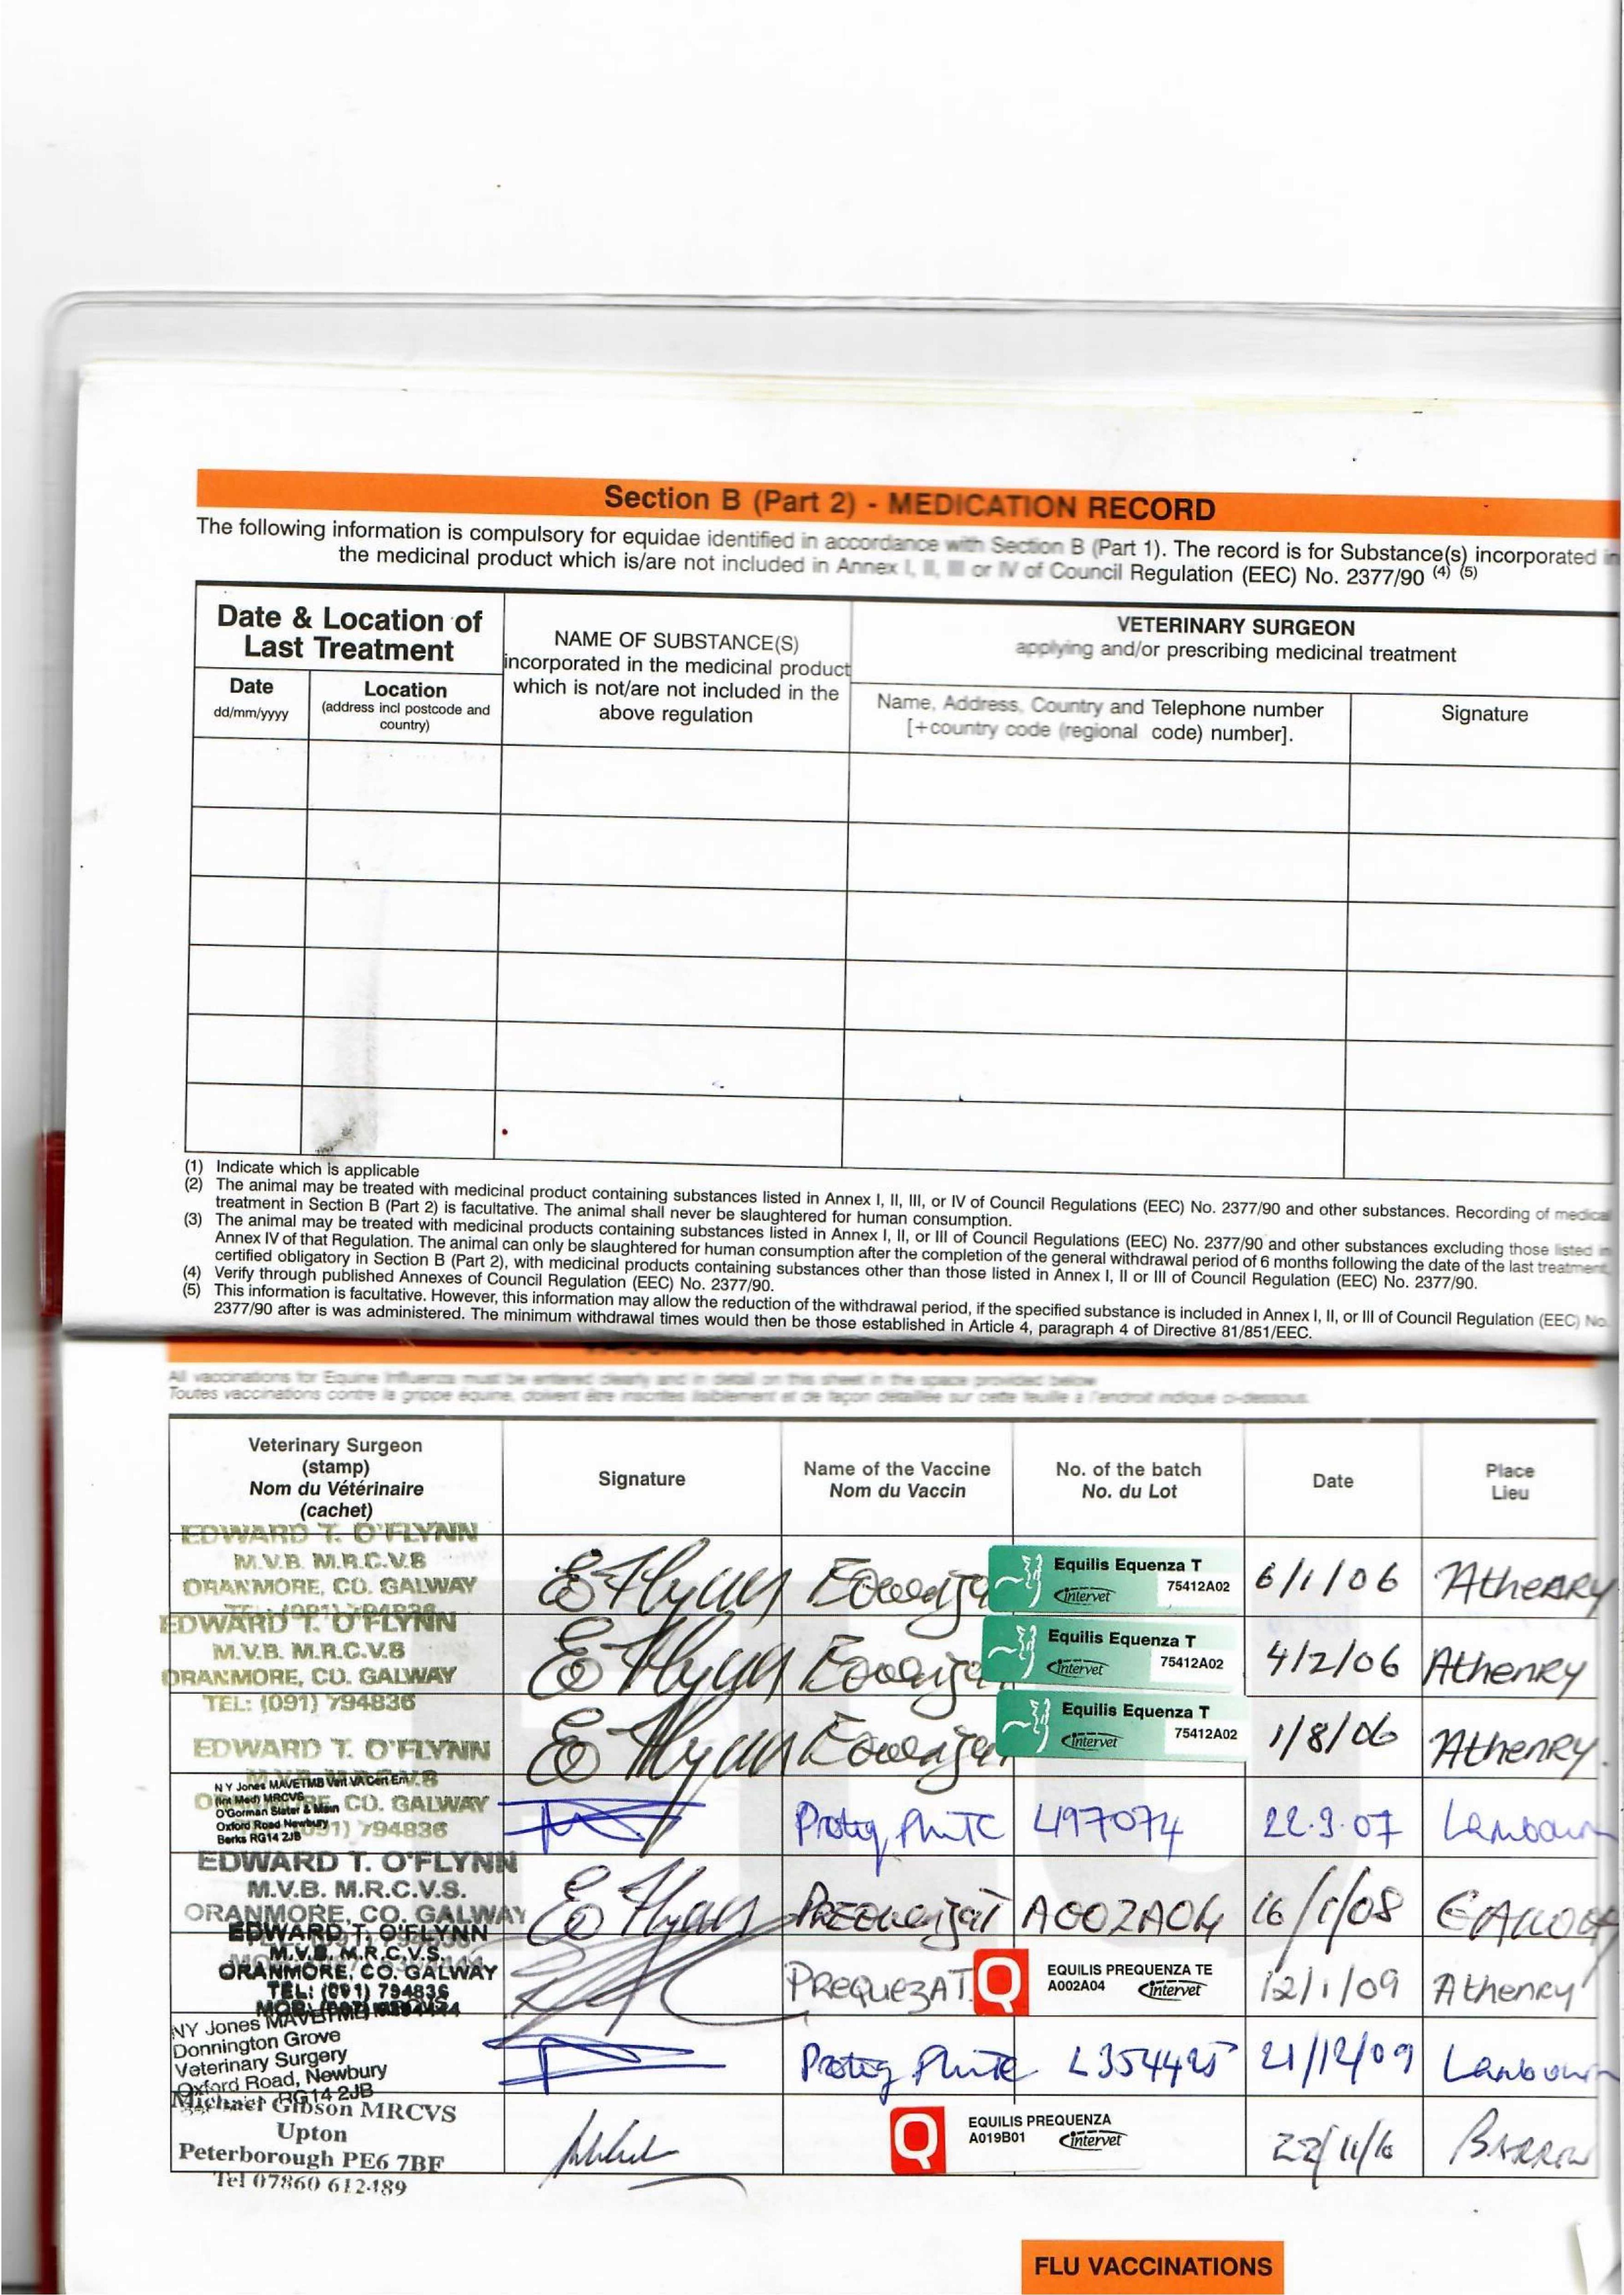 Section B (Part 2) - MEDICATION RECORD
The following information is compulsory for equidae identified in accordance with Section B (Part 1). The record is for Substance(s) incorporated in
the medicinal product which is/are not included in Annex I, II, III or IV of Council Regulation (EEC) No. 2377/90 (4) (5)
Date & Location of
Last Treatment
NAME OF SUBSTANCE(S)
incorporated in the medicinal product
which is not/are not included in the
above regulation
VETERINARY SURGEON
applying and/or prescribing medicinal treatment
Date
dd/mm/yyyy
Location
(address incl postcode and
country)
Name, Address, Country and Telephone number
[+country code (regional code) number].
Signature
(1) Indicate which is applicable
(2) The animal may be treated with medicinal product containing substances listed in Annex I, II, III, or IV of Council Regulations (EEC) No. 2377/90 and other substances. Recording of medical
treatment in Section B (Part 2) is facultative. The animal shall never be slaughtered for human consumption.
(3) The animal may be treated with medicinal products containing substances listed in Annex I, II, or III of Council Regulations (EEC) No. 2377/90 and other substances excluding those listed in
Annex IV of that Regulation. The animal can only be slaughtered for human consumption after the completion of the general withdrawal period of 6 months following the date of the last treatment,
certified obligatory in Section B (Part 2), with medicinal products containing substances other than those listed in Annex I, II or III of Council Regulation (EEC) No. 2377/90.
(4) Verify through published Annexes of Council Regulation (EEC) No. 2377/90.
(5) This information is facultative. However, this information may allow the reduction of the withdrawal period, if the specified substance is included in Annex I, II, or III of Council Regulation (EEC) No.
2377/90 after is was administered. The minimum withdrawal times would then be those established in Article 4, paragraph 4 of Directive 81/851/EEC.
All vaccinations for Equine Influenza must be entered clearly and in detail on this sheet in the space provided below
Toutes vaccinations contre la grippe équine, doivent être inscrites lisiblement et de façon détaillée sur cette feuille à l'endroit indiqué ci-dessous.
Veterinary Surgeon
(stamp)
Nom du Vétérinaire
(cachet)
Signature
Name of the Vaccine
Nom du Vaccin
No. of the batch
No. du Lot
Date
Place
Lieu
EDWARD T. O'FLYNN
M.V.B. M.R.C.V.S
ORANMORE, CO. GALWAY
TEL: (091) 794836
Equilis Equenza T
Intervet 75412A02
6/1/06 AtheNRY
EDWARD T. O'FLYNN
M.V.B. M.R.C.V.S
ORANMORE, CO. GALWAY
TEL: (091) 794836
Equilis Equenza T
Intervet 75412A02
4/2/06 Athenry
EDWARD T. O'FLYNN
CO. GALWAY
794836
Equilis Equenza T
Intervet 75412A02
1/8/06 Athenry.
N Y Jones MAVETMB
MRCVS
O'Gorman Slater & Main
Oxford Road Newbury
Berks RG14 2JB
497074 22.3.07 Lambourn
EDWARD T. O'FLYNN
M.V.B. M.R.C.V.S.
ORANMORE, CO. GALWAY
A002A04 16/1/08
EDWARD T. O'FLYNN
M.V.B. M.R.C.V.S.
ORANMORE, CO. GALWAY
TEL: (091) 794836
PREQUEZA T. Q EQUILIS PREQUENZA TE
A002A04 Intervet
12/1/09 Athenry
NY Jones
Donnington Grove
Veterinary Surgery
Oxford Road, Newbury
RG14 2JB
21/12/09 Lambourn
Michael Gibson MRCVS
Upton
Peterborough PE6 7BF
Tel 07860 612489
Q EQUILIS PREQUENZA
A019B01 Intervet
22/11/10
FLU VACCINATIONS